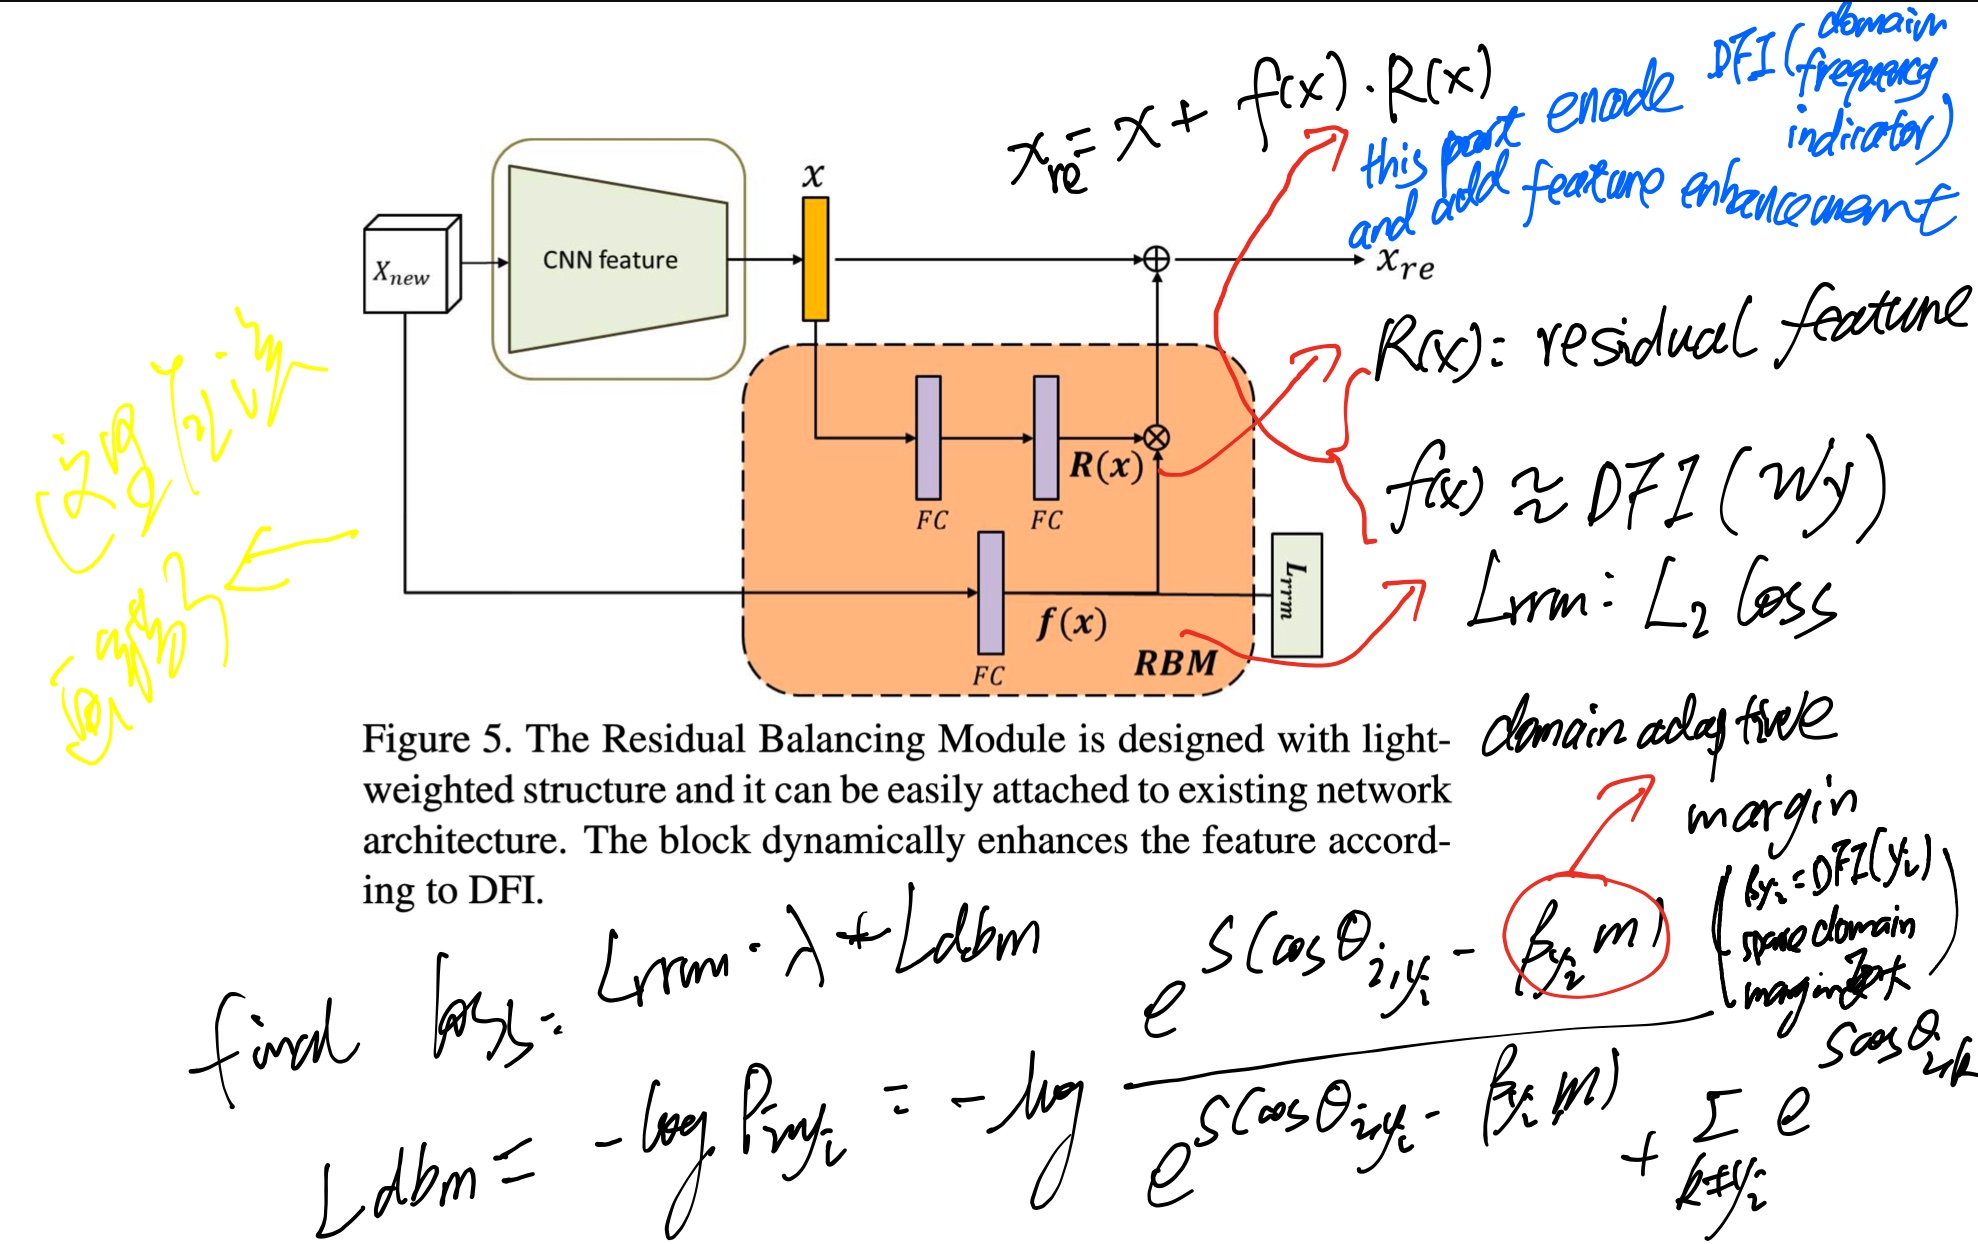 DFI (domain
frequency
indicator)
x_re = x + f(x) · R(x)
this part encode
and add feature enhancement
x
X_new
CNN feature
x_re
R(x): residual feature
R(x)
FC
FC
f(x) ≈ DFI (Wy)
L_rrm
Lrrm: L2 loss
f(x)
RBM
FC
Figure 5. The Residual Balancing Module is designed with light-
weighted structure and it can be easily attached to existing network
architecture. The block dynamically enhances the feature accord-
ing to DFI.
domain adaptive
margin
(βyi = DFI(yi)
domain
final loss = Lrrm · λ + Ldbm
Ldbm = - log Pi,yi = - log e^{s(cosθi,yi - βyi m)} / e^{s(cosθi,yi - βyi m)} + Σ_{k≠yi} e^{s cosθi,k}